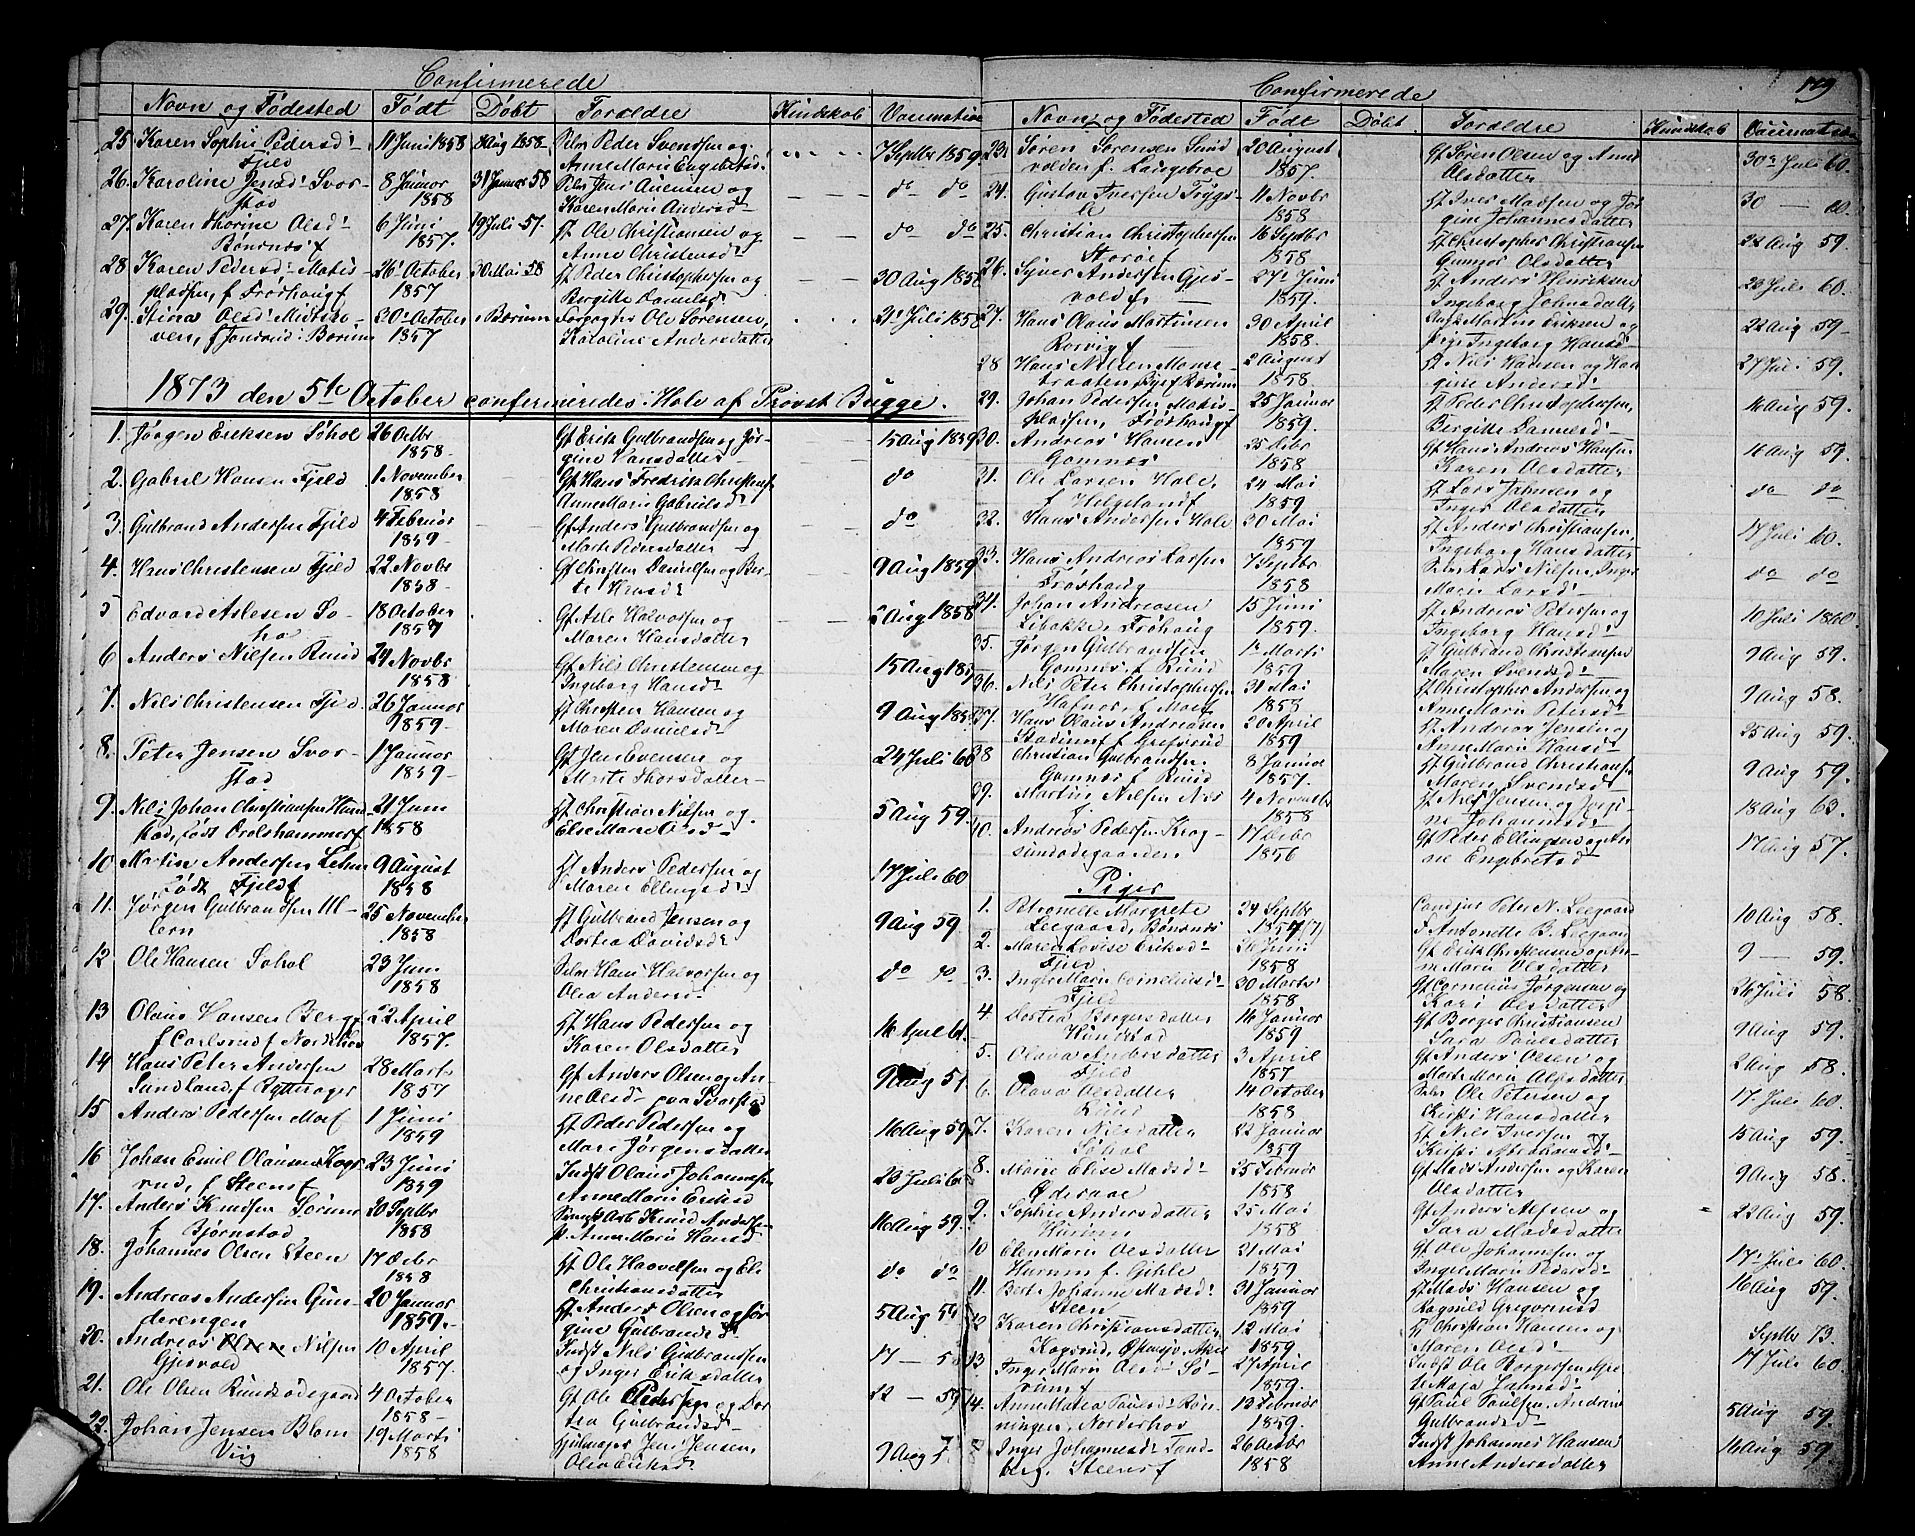 Confirmerede
Navn og Fødested Født Døbt Forældre Kundskab Vaccination
25. Karen Sophie Pedersd: 11 Juni 1858 8 Aug 1858 Peder Svendsen og 7 Septbr 1859
Fjeld Anne Marie Engebretsd:
26. Karoline Jensd: Svor- 8 Januar 31 Januar 58 Jens og do do
stad 1858 Karen Marie Andersd:
27. Karen Thorine Olsd: 6 Juni 19 Juli 57. Gf Ole Christiansen og do do
Bønsnæs f 1857. Anne Christensd:
28. Karen Pedersd: Matis- 26 October 30 Mai 58 Gf Peder Christophersen og 30 Aug 1858
pladsen, f Frøshaug f 1857 Birgitte Danielsd:
29. Stina Olsd: 30 October Bærum Forpagter Ole Sørensen, 21 Juli 1858
Bærum 1857 Karoline Andersdatter
1873 den 5te October confirmeredes i Hole af Provst Bugge.
1. Jørgen Eriksen Søhol 26 Octbr Gf Erik Gulbrandsen og Jør- 15 Aug 1859
1858. gine Hansdatter
2. Gabriel Hansen Fjeld 1 November Gf Hans Fredrik Christens. do
1858 Anne Marie Gabrielsd:
3. Gulbrand Andersen Fjeld 4 Februar Gf Anders Gulbrandsen og do
1859 Marte Pedersdatter
4. Hans Christensen Fjeld 22 Novbr Gf Christen Danielsen og Ber- 9 Aug 1859
1858 te Hansd:
5 Edvard Aslesen So- 18 October Gf Asle Halvorsen og Aug 1858
hol Maren Hansdatter
6 Anders Nilsen Ruud 24 Novbr Gf Nils Christensen og 15 Aug
1858 Ingeborg Hansd:
7. Nils Christensen Fjeld 26 Januar Gf Christen Hansen og 9 Aug
1859. Maren Danielsd:
8. Peter Jensen Svor- 1 Januar Gf Jens Evensen og 24 Juli 60
stad 1859 Marte Thorsdatter
9. Nils Johan Christiansen 21 Juni Gf Christian Nilsen og 5 Aug 59.
stad, født Drolshammer f 1858 Else Marie Olsd:
10. Martin Andersen 9 August Gf Anders Pedersen og 17 Juli 60
født Fjeld f 1858 Maren Ellingsd:
11. Jørgen Gulbrandsen Ul- 25 November Gf Gulbrand Jensen og 9 Aug 59
lern 1858 Dortea Davidsd:
12 Ole Hansen Søhol 23 Juni Hans Halvorsen og do do
1858 Olea Andersd:
13 Olaus Hansen Berg 22 April Gf Hans Pedersen og
f Carlsrud f Norderhov 1857. Karen Olsdatter
14 Hans Peter Andersen 28 Marts Gf Anders Olsen og An- 9 Aug 57
Sundland f Rytterager 1857 ne Olsd: paa Svarstad
15 Anders Pedersen Moe f 1 Juni Gf Peder Pedersen og 16 Aug 59
1859 Mari Jørgensdatter
16 Johan Emil Olausen Kogs- 23 Juni Indst Olaus Johannesen 23 Juli
rud, f Steens f 1859 Anne Marie Eriksd
17. Anders Knudsen Sørum 20 Septbr Knud Andersen 16 Aug 59.
f Bjørnstad 1858 Anne Marie Hansd
18. Johannes Olsen Steen 17 Decbr Gf Ole Haavelsen og Eli do do
1858 Christiansdatter
19. Andreas Andersen Gun- 20 Januar Gf Anders Olsen og Jør- 5 Aug
derengen 1859. gine Gulbrandsd
20. Andreas Nilsen 10 April Indst Nils Gulbrandsen 17 —
Gjesvold 1857. og Inger Eriksdatter
21. Ole Olsen Rundsødegaard 4 October Gf Ole Pedersen og Dor- 12 — 59
1858 tea Gulbrandsd:
22. Johan Jensen Blom 19 Marts Hjulmager Jens Jensen, 9 Aug
Viig 1858 Olea Eriksd:
Confirmerede 119
Navn og Fødested Født Døbt Forældre Kundskab Vaccination
23. Søren Sørensen Sund- 20 August Gf Søren Olsen og Anne 30 Juli 60.
volden f. Langebroe 1857. Olsdatter
24. Gustav Iversen Trygs- 11 Novbr Gf Iver Madsen og Jør- 30 — 60.
1858 gine Johannesdatter
25. Christian Christophersen 16 Septbr Gf Christopher Christiansen 22 Aug 59.
Storøe f 1858 Gunnor Olsdatter
26. Syver Andersen Gjes- 27 Juni Gf Anders Henriksen 23 Juli 60.
vold f. 1859. Ingeborg Johnsdatter
27. Hans Olaus Martinsen 30 April Martin Eriksen og 22 Aug 59
Rørvig f 1858. Ingeborg Hansd:
28 Hans Nilsen 2 August Gf Nils Hansen og 27 Juli 59.
braaten 1858. gine Andersd:
29. Johan Pedersen Matis- 25 Januar Gf Peder Christophersen, 16 Aug 59.
pladsen, Frøshaug f 1859. Bergitte Danielsd:
30. Andreas Hansen 25 Decbr Gf Hans Andreas Hansen 16 Aug 59.
Gomnæs 1858 Karen Olsdatter
31. Ole Larsen Hole 24 Mai Gf Lars Jahnsen og do do
f Helgeland f 1859. Inger Olsdatter
32. Hans Andersen Hole 30 Mai Gf Anders Christiansen, 17 Juli 60.
1859 Ingeborg Hansdatter
33. Hans Andreas Larsen 7 Septbr Lars Nilsen, Inger do do
Frøshaug 1858 Marie Larsd:
34. Johan Andreasen 15 Juni Gf Andreas Petersen og 10 Juli 1860.
Libakke, Frøhaug 1859. Ingeborg Hansd:
35. Jørgen Gulbrandsen 1 Marts Gf Gulbrand Christiansen 9 Aug 59.
Gomnæs f Ruud 1859 Maren Svensd:
36. Nils Peter Christophersen 31 Mai Gf Christopher Andersen og 9 Aug 58.
Hafnor, f Moe f 1858 Anne Marie Petersd:
37. Hans Olaus Andreasen 20 April Gf Andreas Jensen og 25 Aug 59.
f Grefsrud 1859 Anne Marie Hansd:
38 Christian Gulbrandsen 8 Januar Gf Gulbrand Christiansen 9 Aug 59.
Gomnæs f Ruud 1857. Maren Svensd:
39. Martin Nilsen Næs 4 Novembr Gf Nils Jensen og Jørgi- 18 Aug 63.
f 1858 ne Johannesd:
40. Andreas Pedersen Krog- 17 Decbr Gf Peder Ellingsen og An- 17 Aug 57.
sundødegaarden 1856 ne Engebretsd
Piger
1. Petronelle Margrete 24 Septbr Candjur Peter N. Leegaard 10 Aug 58.
Leegaard, Bønsnæs 1857(?) f Antonette B. Leegaard
2. Maren Lovise Eriksd: 26 Juni Gf Erik Christensen og An- 9 — 59.
Fjeld 1858 ne Marie Olsdatter
3. Inger Marie Corneliusd: 30 Marts Gf Cornelius Jørgensen og 26 Juli 58.
Fjeld 1858 Kari Olsdatter
4. Dortea Borgersdatter 16 Januar Gf Borger Christiansen 9 Aug 59.
Hundstad 1859 Sara Paulsdatter
5. Olava Andersdatter 3 April Gf Anders Olsen og 2 Aug 58.
Fjeld 1857 Marte Marie Alfsdatter
6. Olava Olsdatter 14 October Ole Petersen og 17 Juli 60.
Ruud 1858 Kirsti Hansdatter
7. Karen Nilsdatter 22 Januar Gf Nils Iversen og 15 Aug 59.
Søhol 1859 Kirsti Abrahamsd:
8. Marie Elise Madsd: 25 Februar Gf Mads Andersen og Karen 9 Aug 58.
1858 Olsdatter
9. Sophie Andersdatter 25 Mai Gf Anders Alfsen og 22 Aug 59.
Hurum 1858 Sara Madsdatter
10 Elen Marie Olsdatter 21 Mai Gf Ole Johannesen og 17 Juli 60.
Hurum f. Gihle 1859 Inger Marie Pedersd:
11. Berte Johanne Madsd: 31 Januar Gf Mads Hansen og 16 Aug 59.
Steen 1859 Ragnild Gregoriusd
12 Karen Christiansdatter 12 Mai Gf Christian Hansen og Septbr 73
Kogsrud, 1859. Maren Olsd:
13 Inger Marie Olsd: Sø- 27 April Indst Ole Borgersen 17 Juli 60
rum f 1859. Maja Jahnsd:
14. Anne Matea Paulsd: Røn- 12 Februar Gf Paul Paulsen, Andrine 5 Aug 59.
ningen, Norderhov 1859. Gulbrandsd:
Inger Johannesd: Tand- 26 Octbr Indst Johannes Hansen 16 Aug 59.
berg, Steens f 1858 Anne Andersdatter